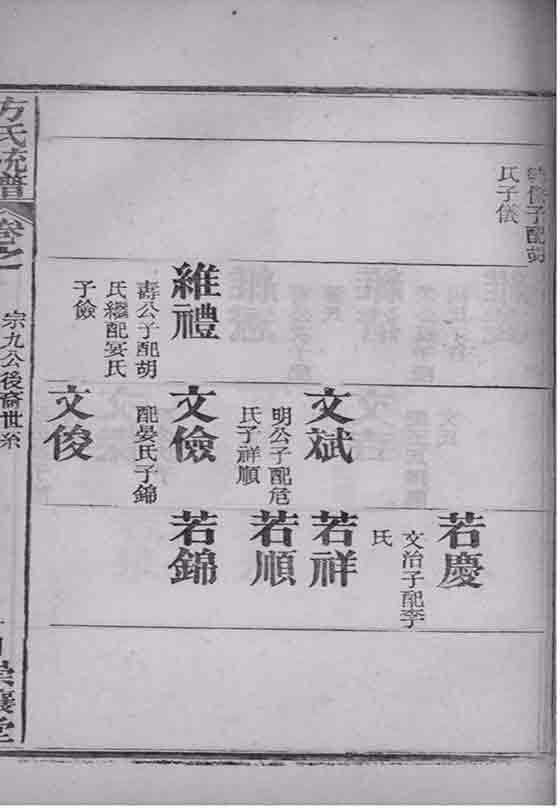 子配胡
氏子儀
維禮
壽公子配胡
氏繼配宴氏
子儉
文斌
明公子配危
氏子祥順
文儉
配晏氏子錦
文俊
若慶
文治子配李
氏
若祥
若順
若錦
方氏統譜
卷之
宗九公後裔世系